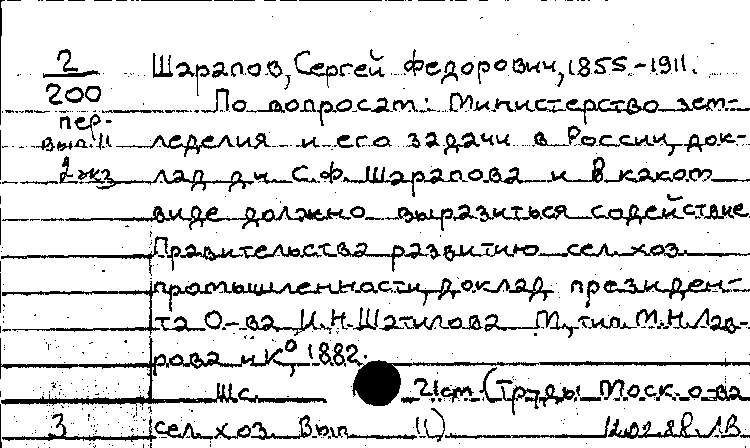 2
200
пер.
вып. 11
2 экз
Шарапов, Сергей Федорович, 1855-1911.
По вопросам: Министерство зем-
леделия и его задачи в России, док-
лад д.чл. С.Ф. Шарапова и В каком
виде должно выразиться содействие
Правительства развитию сел. хоз.
промышленности, доклад президен-
та О-ва И.Н.Шатилова М., тип. М.Н.Лав-
рова и К°, 1882.
21см (Труды Моск. о-ва
3 сел. хоз. Вып. 11). 12.02.88. ЛВ